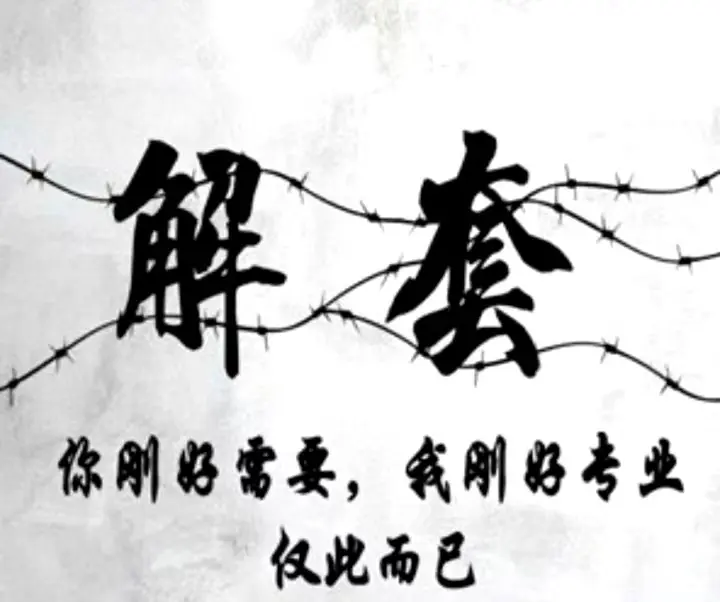 解套
你刚好需要，我刚好专业
仅此而已